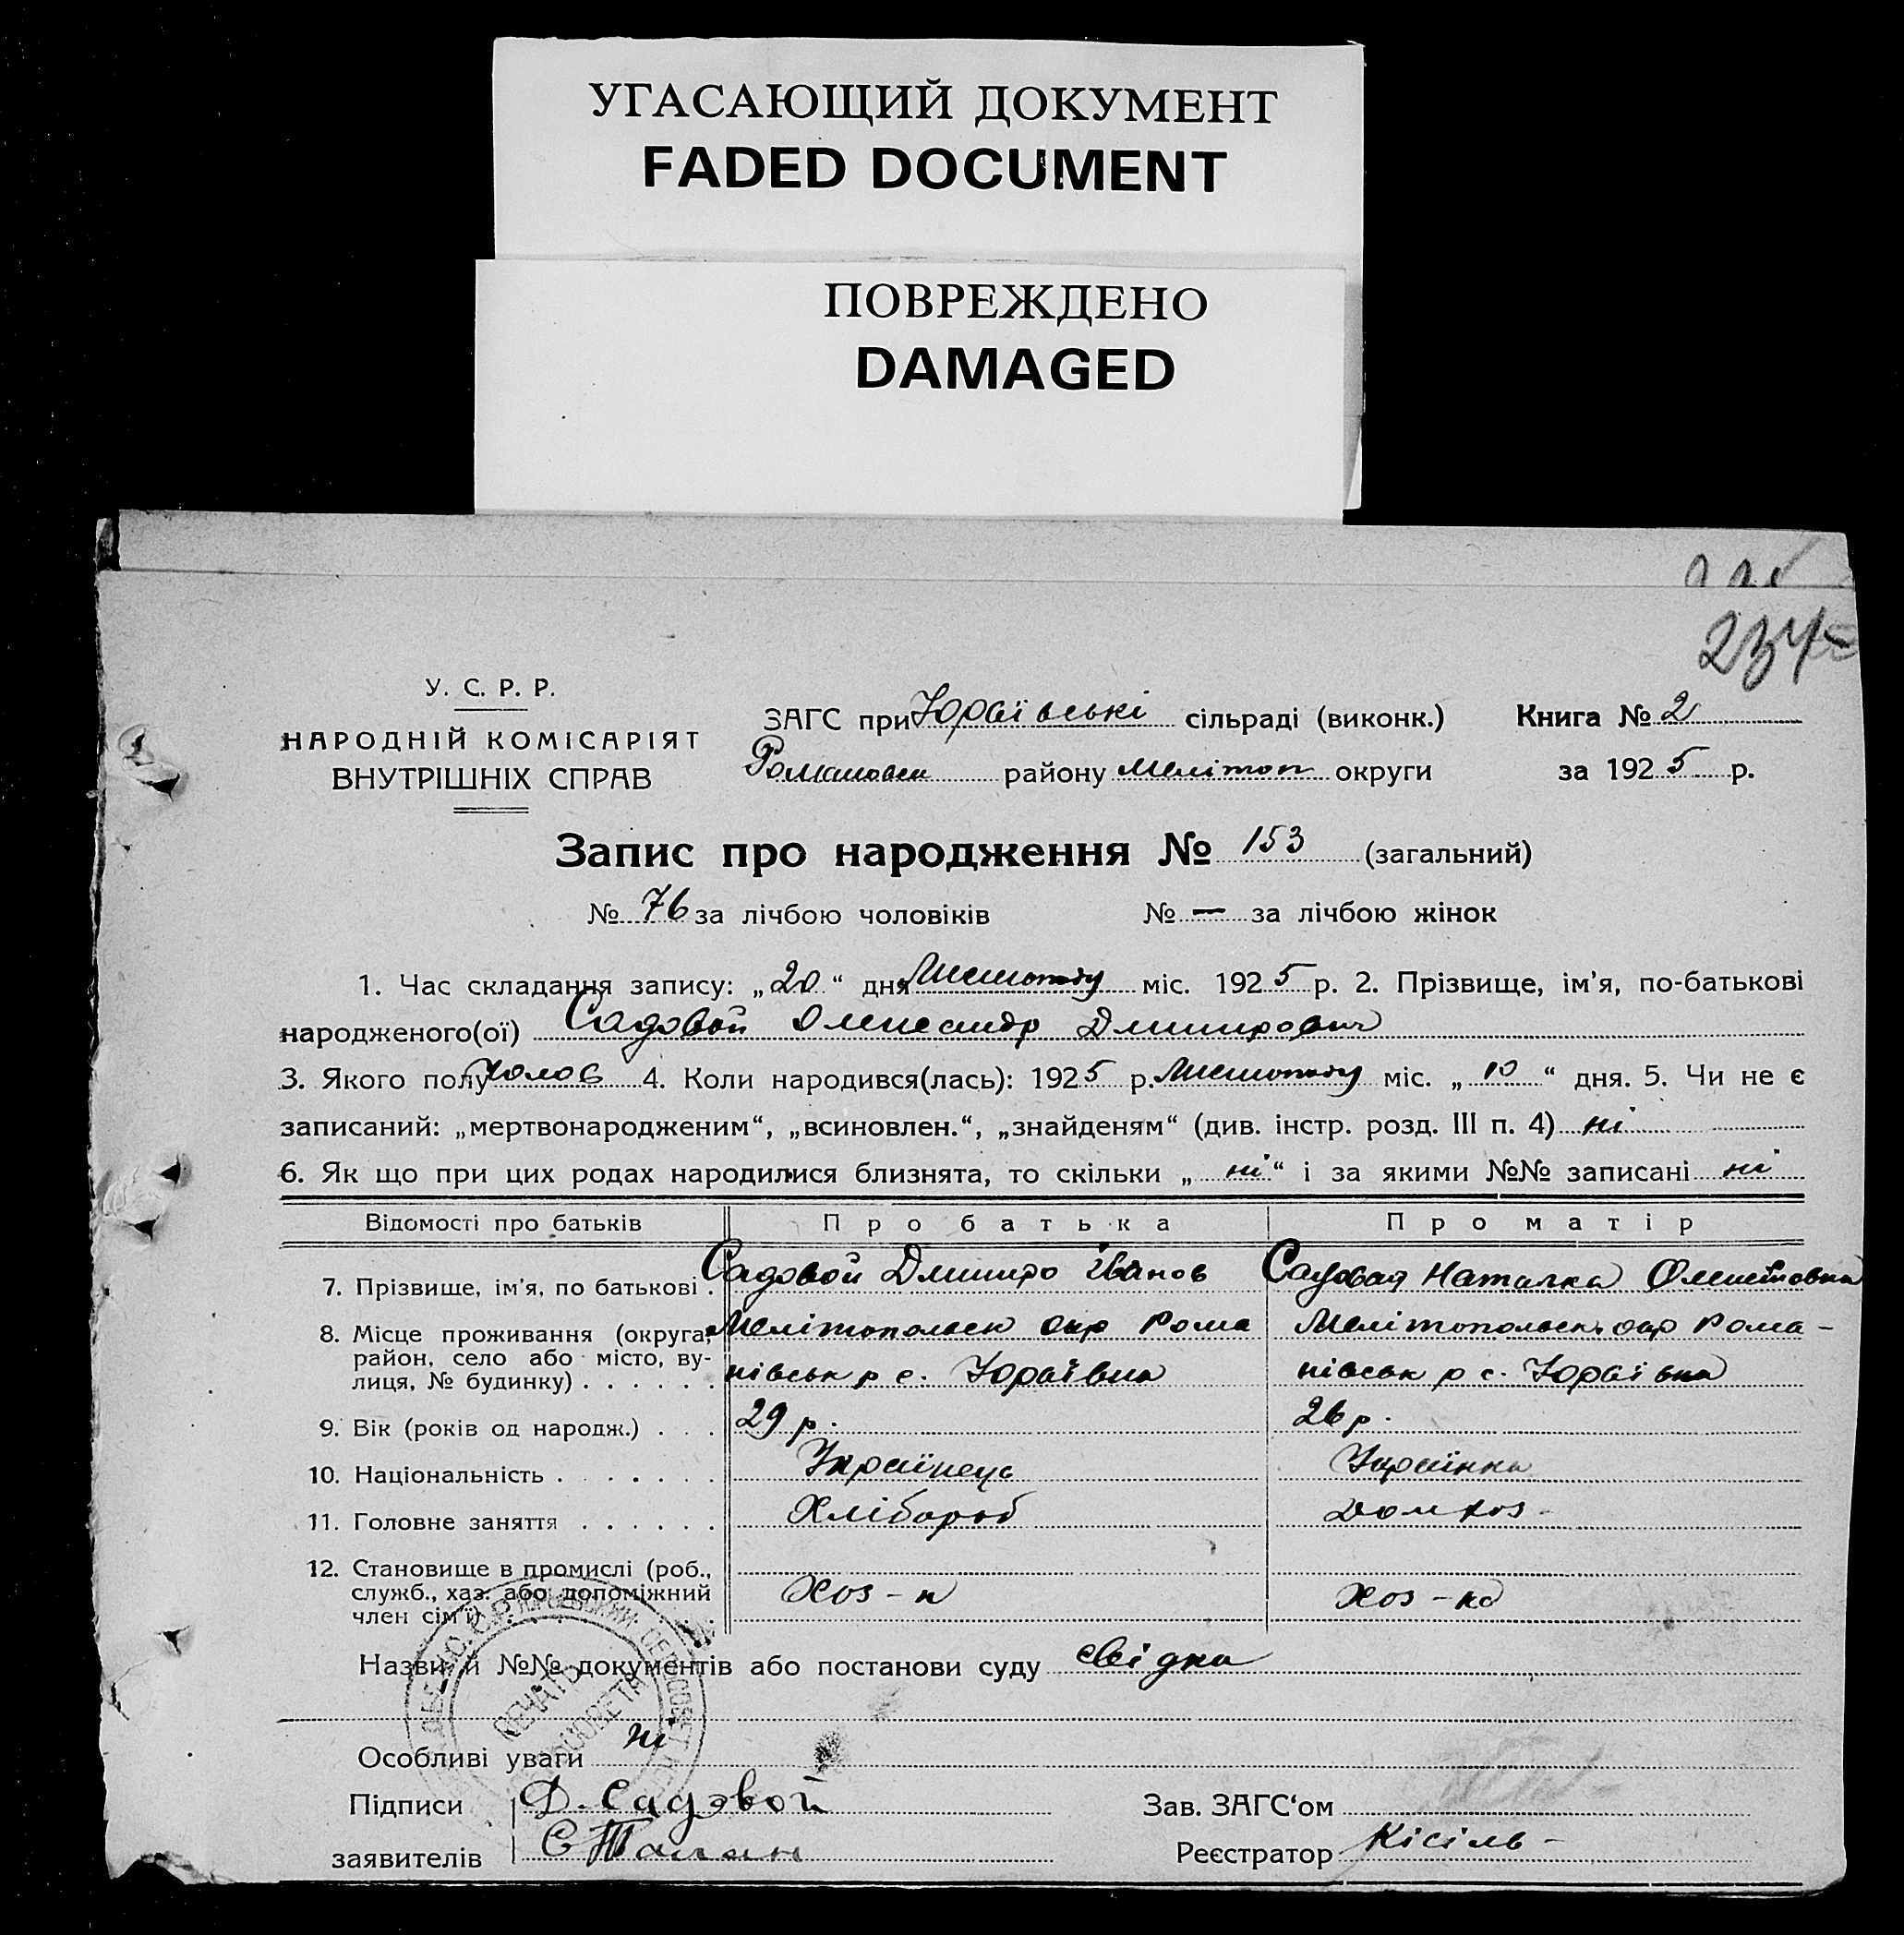 УГАСАЮЩИЙ ДОКУМЕНТ
FADED DOCUMENT
ПОВРЕЖДЕНО
DAMAGED
234
У. С. Р. Р.
НАРОДНІЙ КОМІСАРІЯТ
ВНУТРІШНІХ СПРАВ
ЗАГС при Юраївські сільраді (виконк.) Книга № 2
Романовськ району Мелітоп округи за 1925 р.
Запис про народження № 153 (загальний)
№ 76 за лічбою чоловіків № — за лічбою жінок
1. Час складання запису: „20“ дня Листопаду міс. 1925 р. 2. Прізвище, ім'я, по-батькові
народженого(ої) Садовой Олександр Дмитрович
3. Якого полу Чолов 4. Коли народився(лась): 1925 р. Листопаду міс. „10“ дня. 5. Чи не є
записаний: „мертвонародженим“, „всиновлен.“, „знайденям“ (див. інстр. розд. III п. 4) ні
6. Як що при цих родах народилися близнята, то скільки „ні“ і за якими №№ записані ні
Відомості про батьків Про батька Про матір
7. Прізвище, ім'я, по батькові . Садовой Дмитро Іванов Садовая Наталка
8. Місце проживання (округа, район, село або місто, вулиця, № будинку) . . . . . . Мелітопольськ окр Рома
нівськ р с. Юраївка Мелітопольськ. окр Рома-
нівськ р с. Юраївка
9. Вік (років од народж.) . . . 29 р. 26 р.
10. Національність . . . . . . . Українець Українка
11. Головне заняття . . . . . . Хлібороб Домхоз-
12. Становище в промислі (роб.,
служб., хаз. або допоміжний
член сім'ї) . . . . . . . Хоз-н Хоз-ка
Назви й №№ документів або постанови суду свідки
Особливі уваги ні
ПЕЧАТЬ
Підписи Д. Садовой Зав. ЗАГС‘ом
заявителів Реєстратор Кісіль-